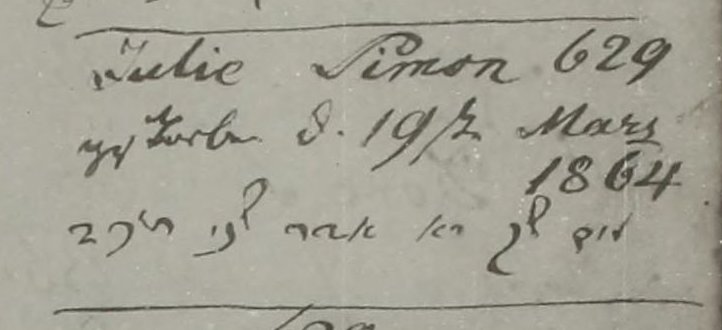 Julie Simon 629
gestorben d. 19/t März
1864
יום שק יא אדר שני תרכד